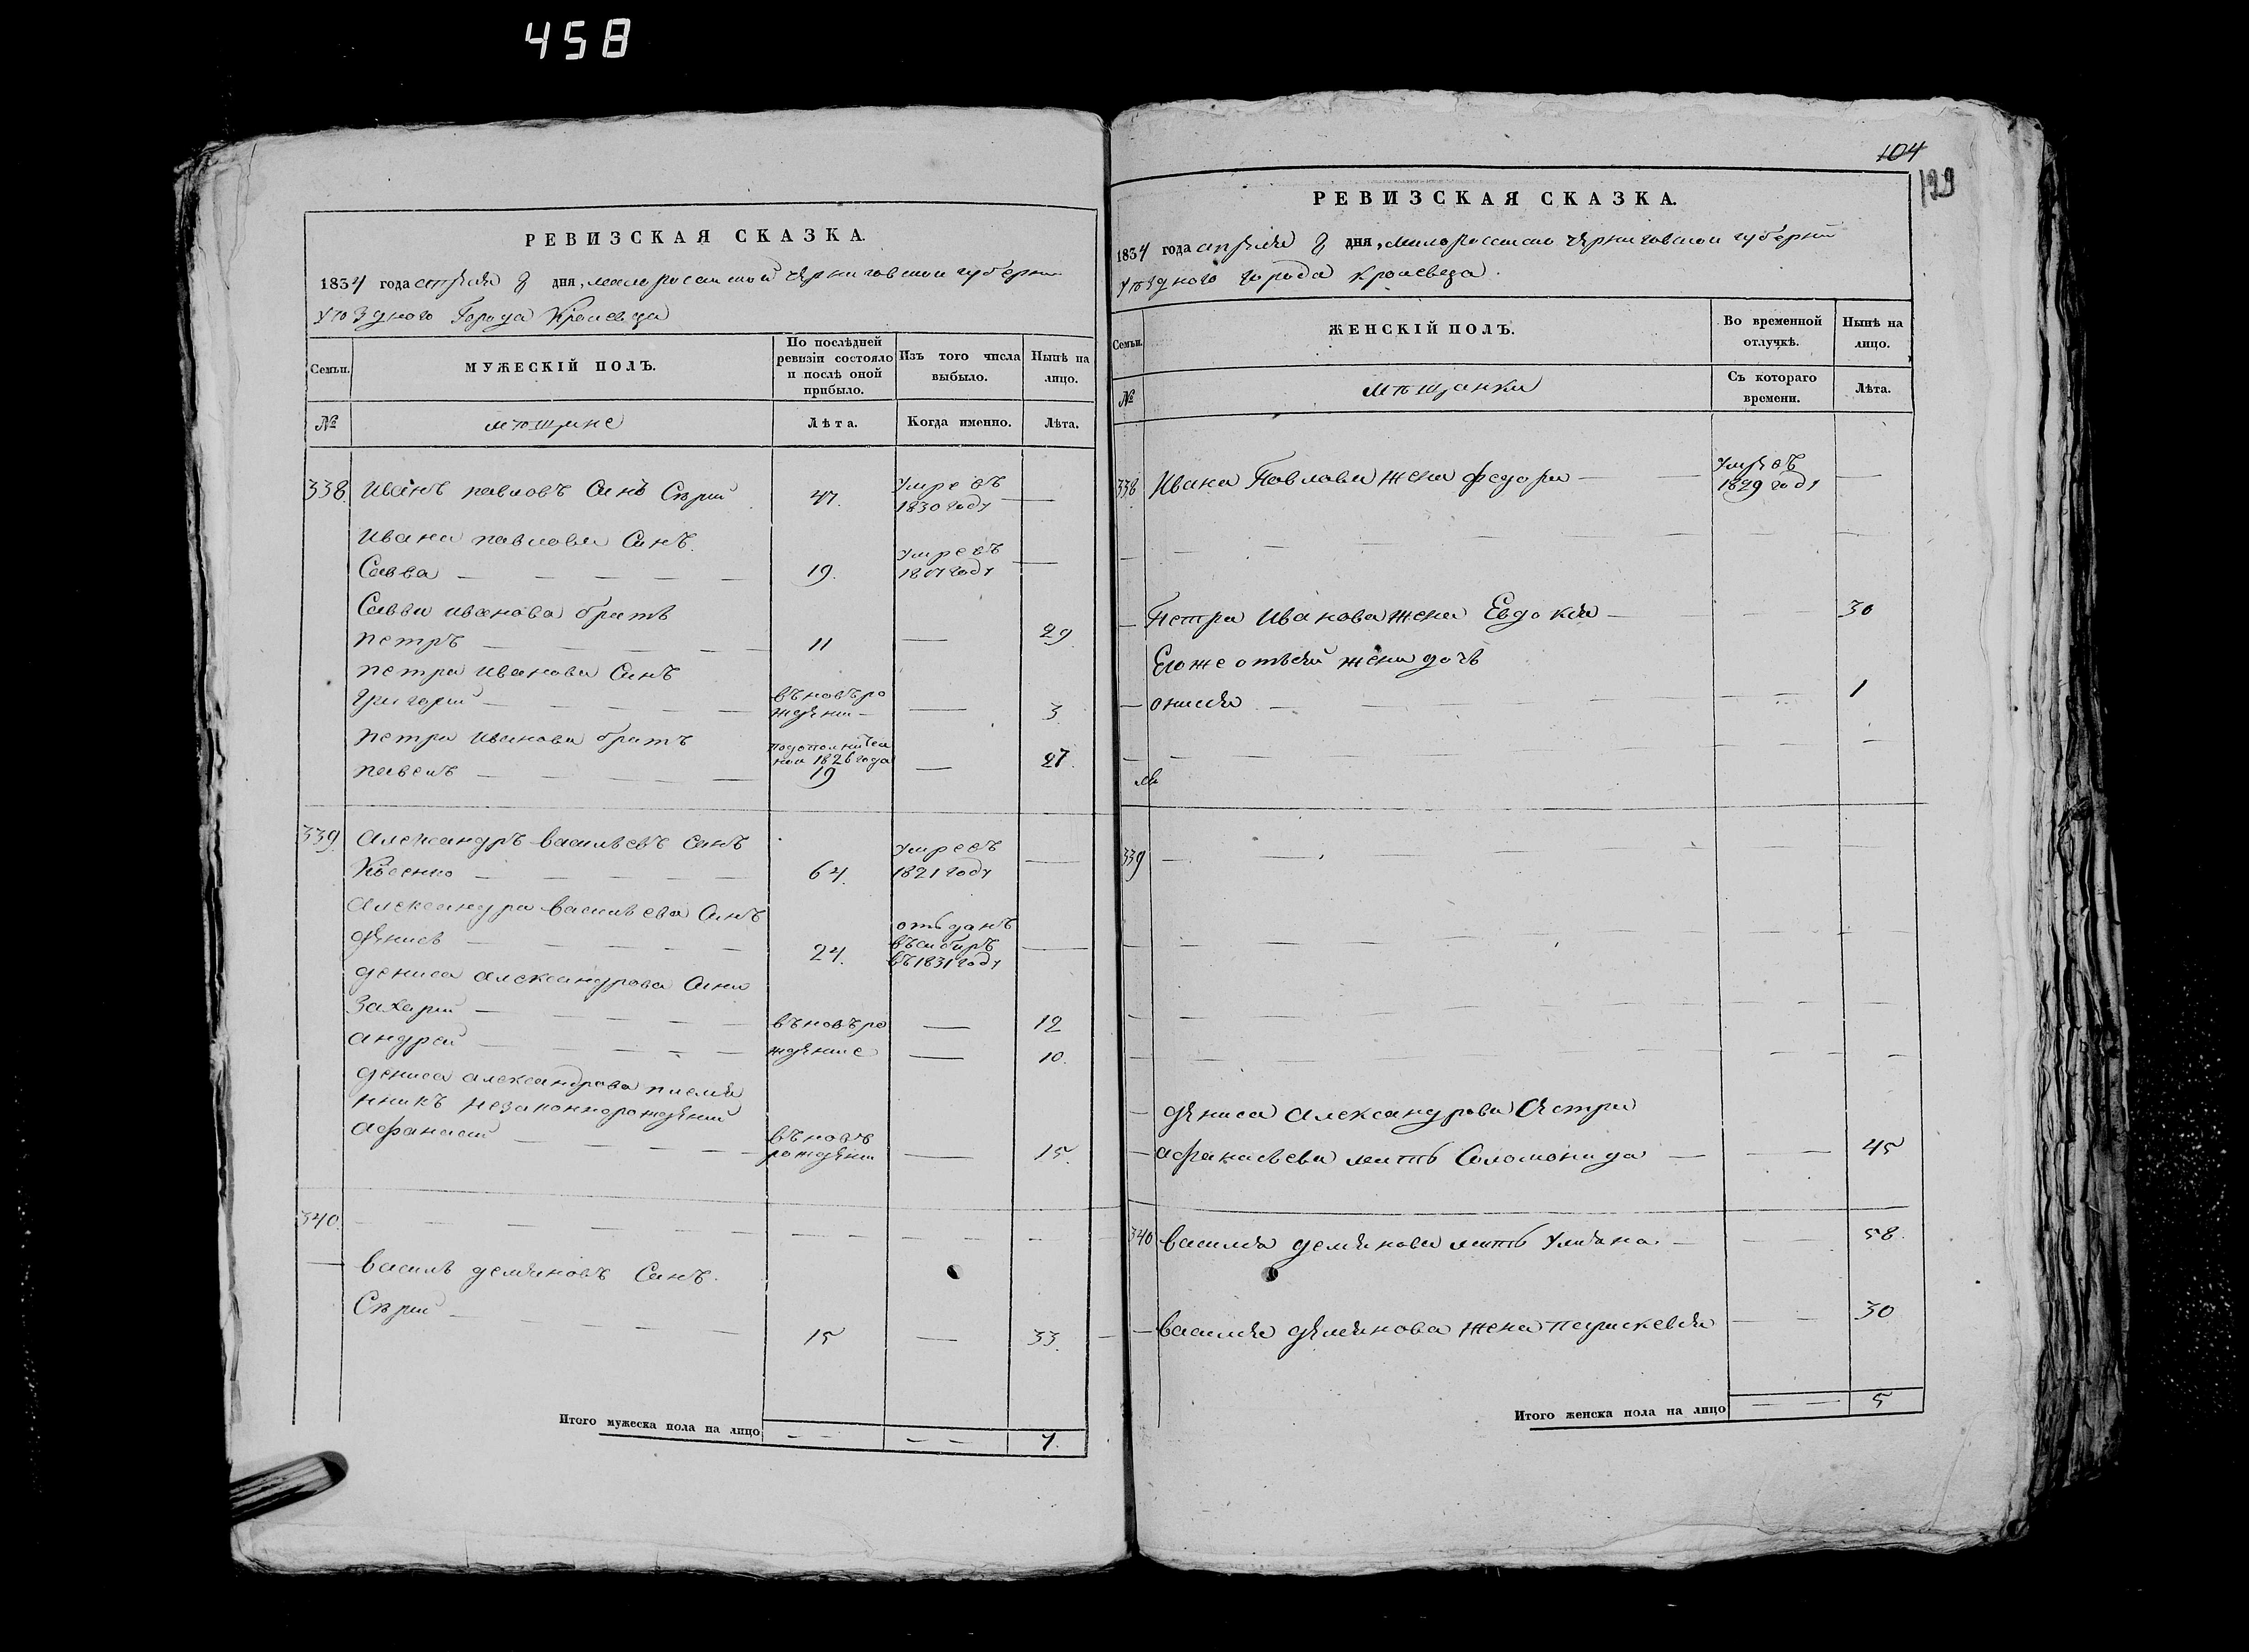 458
РЕВИЗСКАЯ СКАЗКА.
1834 года апреля 9 дня, малоросийской Черниговской губернии
уѣздного Города Кролевца
Семьи.
МУЖЕСКІЙ ПОЛЪ.
По послѣдней ревизіи состояло и послѣ оной прибыло.
Изъ того числа выбыло.
Нынѣ на лицо.
№
мѣщане
Лѣта.
Когда именно.
Лѣта.
338 Иванъ павловъ Синъ Сѣрий 47. умревъ 1830 году —
Ивана павлова Синъ
Савва — 19. умревъ году —
Савви иванова братъ
петръ — 11 — 29
петра иванова Синъ
григорий — въновъ рождени — 3
петра иванова братъ
павелъ — 1826 года 19 — 27.
339 александръ васильевъ синъ
64. умревъ 1821 году —
александра васильева Синъ
денисъ — 24. отъданъ въсибиръ въ 1831 году —
дениса александрова Сини
Захарий — въновъ ро — 12
андрей — ждение — 10.
дениса александрова племя
нникъ незаконнорождений
афанасий — въновъ рождени — 15.
340.
— василь демяновъ Синъ.
Сѣрий — 15 — 33.
Итого мужеска пола на лицо — — — — 7.
104
199
РЕВИЗСКАЯ СКАЗКА.
1834 года апреля 9 дня, малоросийско Черниговской губерний
уѣздного города кролевца.
Семьи.
ЖЕНСКІЙ ПОЛЪ.
Во временной отлучкѣ.
Нынѣ на лицо.
№
мѣщанки
Съ котораго времени.
Лѣта.
338 Ивана Павлова жена федора — умре въ 1829 году —
— Петра Иванова жена Евдокия — 30
Егоже отъсей жены дочь
— — 1
339
дениса александрова Сестра
— афанасьева мать Соломонида — 45
340 василия демянова мать Улияна — 58.
— василия демянова жена параскевия — 30
Итого женска пола на лицо — — 5